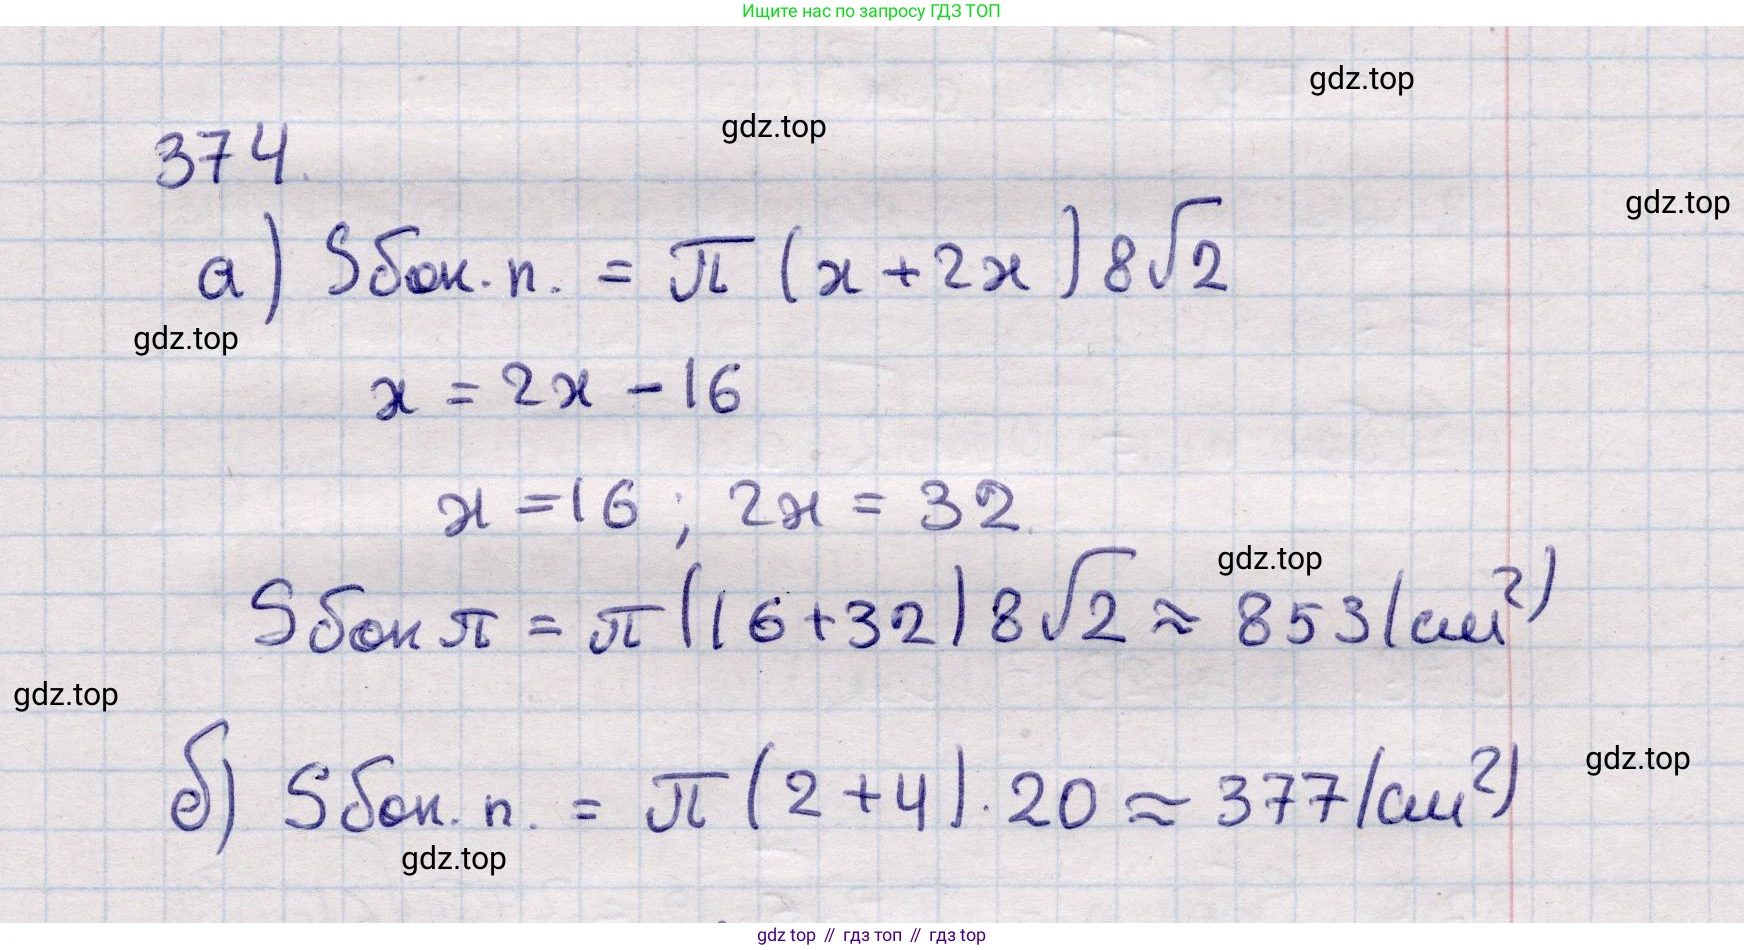 Ищите нас по запросу ГДЗ ТОП
gdz.top
gdz.top
374.
gdz.top
а) Sбок. п. = π (x + 2x) 8√2
gdz.top
x = 2x - 16
x = 16 ; 2x = 32.
gdz.top
Sбок п = π (16 + 32) 8√2 ≈ 853 (см²)
gdz.top
б) Sбок. п. = π (2 + 4) · 20 ≈ 377 (см²)
gdz.top
gdz.top
gdz top // гдз топ // гдз top